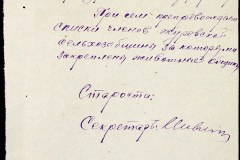 При сем препровождаем
списки членов Журовской
сельхозобщины за которыми
закреплены животные
Староста:
Секретарь